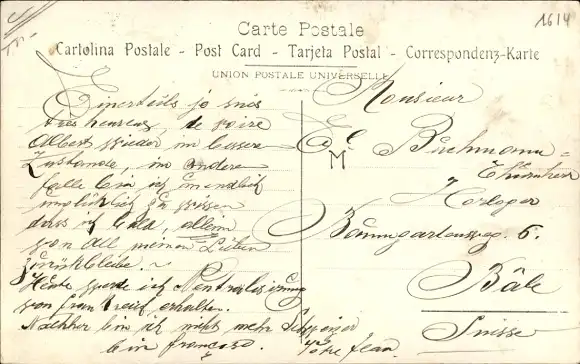 1614
Carte Postale
Cartolina Postale - Post Card - Tarjeta Postal - Correspondenz-Karte
UNION POSTALE UNIVERSELLE
Einerseits je suis
très heureux, de voire
Albert wieder in besserm
Zustande, im andern
falle bin ich unendlich
unglücklich zu wissen
dass ich bald, allein
von all meinen Lieben
zurückbleibe.
Heute werde ich Neutralisirung
von frankreich erhalten.
Nachher bin ich nicht mehr Schweizer
bin français. Votre Jean
Monsieur
Buchmann-
Thürnherr
Horloger
Baumgartenweg. 6.
Bâle
Suisse